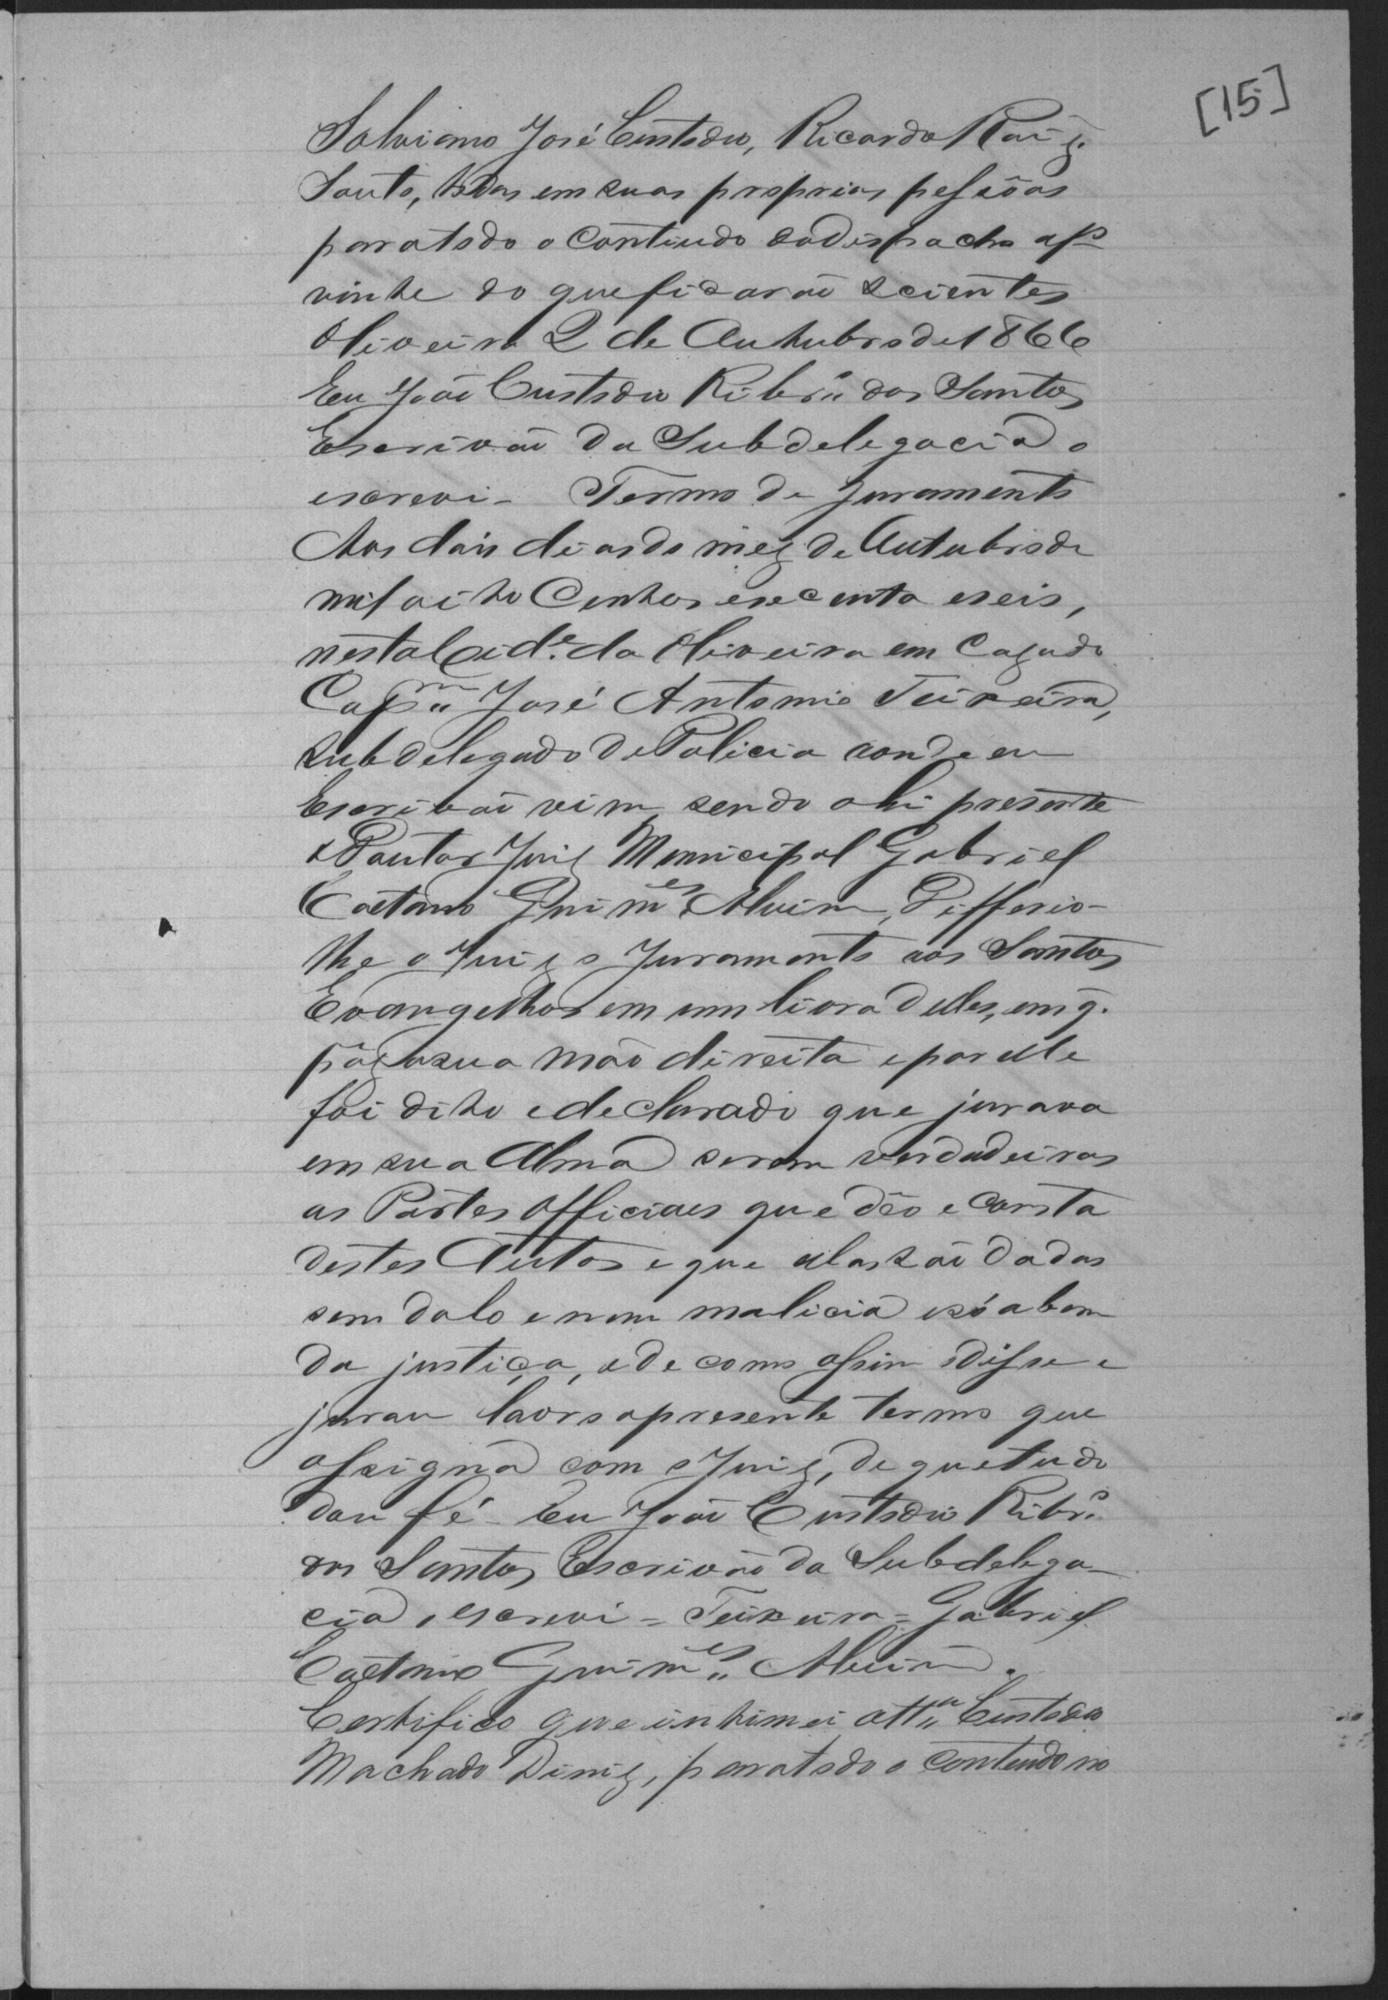 [15]
Salviano José Custodio, Ricardo
Souto, todos em suas proprias pessôas
paratodo o contiudo dodispacho afs
vinte do queficarão scientes
Oliveira 2 de Outubrode1866
Eu João Custodio Ribrº dos Santos
Escrivão da Subdelegacia o
escrevi - Termo de juramento
Aos dois diasdo mez de Outubrode
mil oito Centos esecenta eseis,
nestaCidᵉ. da Oliveira em Cazado
Capᵐ José Antonio Teixeira,
subdelegado dePolicia aonde eu
Escrivão vim, sendo ahi presente
o Doutor Juiz Municipal Gabriel
Caetano Guimᵉˢ Alvim, Differio-
lhe o Juiz o Juramento aos Santos
Evangelhos em um livro delles, emq.
pôz asua mão direita eporelle
foi dito edeclarado que jurava
em sua Alma serem verdadeiras
as Partes officiaes que dêo e consta
destes Autos e que ellas são dadas
sem dolo enem malicia esó abem
da justiça, ede como assim odisse e
jurou lavro opresente termo que
assigna com o Juiz, de quetudo
dou fé - Eu João Custodio Ribrº
dos Santos Escrivão da Subdelega-
cia, escrevi = Teixeira = Gabriel
Caetano Guimᵉˢ Alvim.
Certifico que intimei Custodio
Machado Diniz, paratodo o contendo no